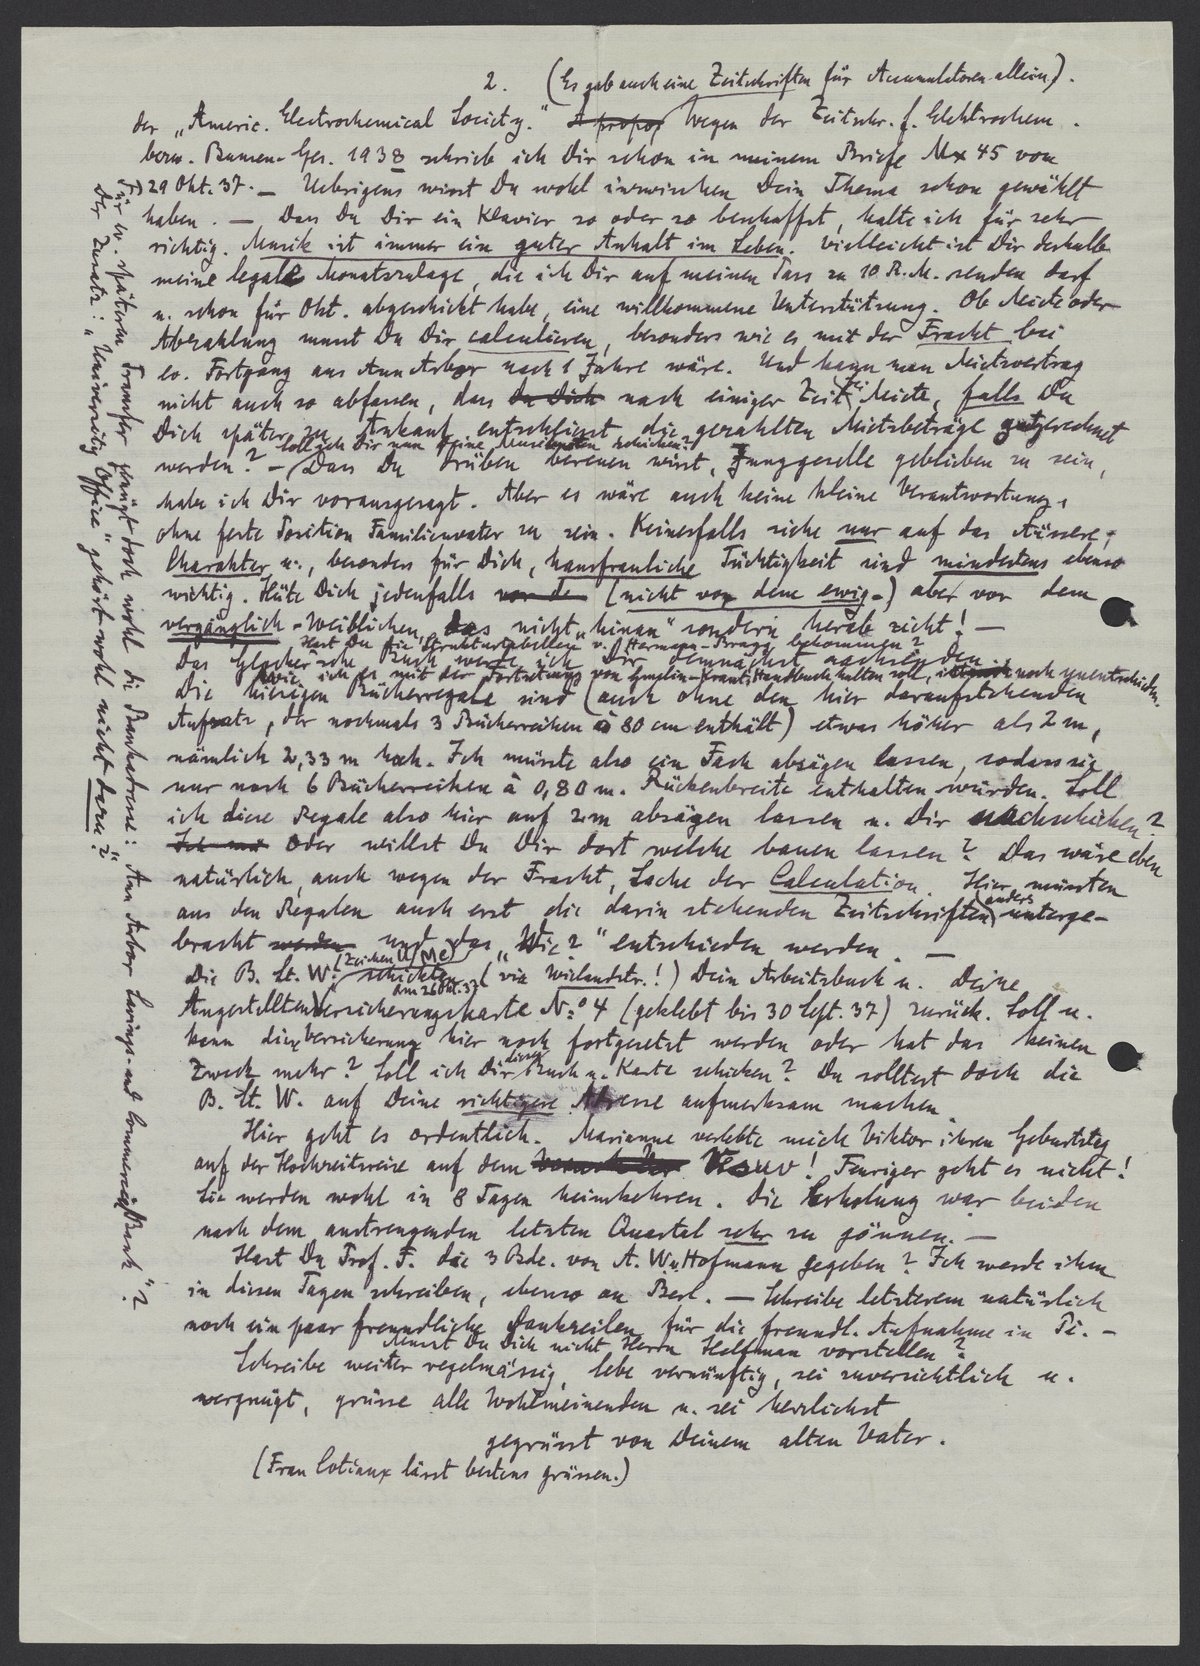 2. (Es gab auch eine Zeitschriften für Accumulatoren allein).
der „Americ. Electrochemical Society." A propos Wegen der Zeitschr. f. Elektrochem.
bezw. Bunsen-Ges. 1938 schrieb ich Dir schon in meinem Briefe Mx 45 vom
29 Okt. 37. – Uebrigens wirst Du wohl inzwischen Dein Thema schon gewählt
haben. – Dass Du Dir ein Klavier so oder so beschaffst, halte ich für sehr
richtig. Musik ist immer ein guter Anhalt im Leben. Vielleicht ist Dir deshalb
meine legale Monatszulage, die ich Dir auf meinen Pass zu 10 R.M. senden darf
u. schon für Okt. abgeschickt habe, eine willkommene Unterstützung. Ob Miete oder
Abzahlung musst Du Dir calculieren, besonders wie es mit der Fracht bei
ev. Fortgang aus Ann Arbor nach 1 Jahre wäre. Und kann man Mietsvertrag
nicht auch so abfassen, dass Du Dich nach einiger Zeit Miete, falls Du
Dich später zu Ankauf entschliesst die gezahlten Mietsbeträge gutgerechnet
Soll ich Dir nun Deine Musiknoten schicken?
werden? – Dass Du drüben bereuen wirst, Junggeselle geblieben zu sein,
habe ich Dir vorausgesagt. Aber es wäre auch keine kleine Verantwortung,
ohne feste Position Familienvater zu sein. Keinesfalls siehe nur auf das Äussere;
Charakter u., besonders für Dich, hausfrauliche Tüchtigkeit sind mindestens ebenso
wichtig. Hüte Dich jedenfalls vor de (nicht vor dem ewig-) aber vor dem
vergänglich-Weiblichen, das nicht „hinan" sondern herab zieht! –
Hast Du die Strukturtabellen v. Hermann-Bragg bekommen?
Das Glocker'sche Buch werde ich Dir demnächst nachsenden.
Wie ich es mit der Fortsetzung von Gmelin-Kraut Handbuch halten soll, ist noch unentschieden.
Die hiesigen Bücherregale sind (auch ohne den hier daraufstehenden
Aufsatz, der nochmals 3 Bücherreihen à 80 cm enthält) etwas höher als 2 m,
nämlich 2,33 m hoch. Ich müsste also ein Fach absägen lassen, sodass sie
nur noch 6 Bücherreihen à 0,80 m. Rückenbreite enthalten würden. Soll
ich diese Regale also hier auf 2 m absägen lassen u. Dir nachschicken?
Oder willst Du Dir dort welche bauen lassen? Das wäre eben
natürlich, auch wegen der Fracht, Sache der Calculation. Hier müssten
aus den Regalen auch erst die darin stehenden Zeitschriften anders unterge-
bracht werden und das „Wie?" entschieden werden. –
Die B. St. W. (Zeichen U/Me) schickten am 26 Okt. 37 (via Wielandstr.!) Dein Arbeitsbuch u. Deine
Angestelltenversicherungskarte No 4 (geklebt bis 30 Sept. 37) zurück. Soll u.
kann diese Versicherung hier noch fortgesetzt werden oder hat das keinen
Zweck mehr? Soll ich Dir dieses Buch u. Karte schicken? Du solltest doch die
B. St. W. auf Deine richtigere Adresse aufmerksam machen.
Hier geht es ordentlich. Marianne verlebte mich Viktor ihren Geburtstag
auf der Hochzeitsreise auf dem Vesuv! Feuriger geht es nicht!
Sie werden wohl in 8 Tagen heimkehren. Die Erholung war beiden
nach dem anstrengenden letzten Quartal sehr zu gönnen. –
Hast Du Prof. F. die 3 Bde. von A. W. v. Hofmann gegeben? Ich werde ihm
in diesen Tagen schreiben, ebenso an Berl. – Schreibe letzterem natürlich
noch ein paar freundliche Dankzeilen für die freundl. Aufnahme in Pi. –
Musst Du Dich nicht Herrn Helfman vorstellen?
Schreibe weiter regelmässig, lebe vernünftig, sei zuversichtlich u.
vergnügt, grüsse alle Wohlmeinenden u. sei herzlichst
gegrüsst von Deinem alten Vater.
(Frau Cotiaux lässt bestens grüssen.)
Für ev. späteren Transfer genügt doch wohl die Bankadresse: Ann Arbor Savings and Commercial Bank"?
Der Zusatz: „University Office" gehört wohl nicht dazu?